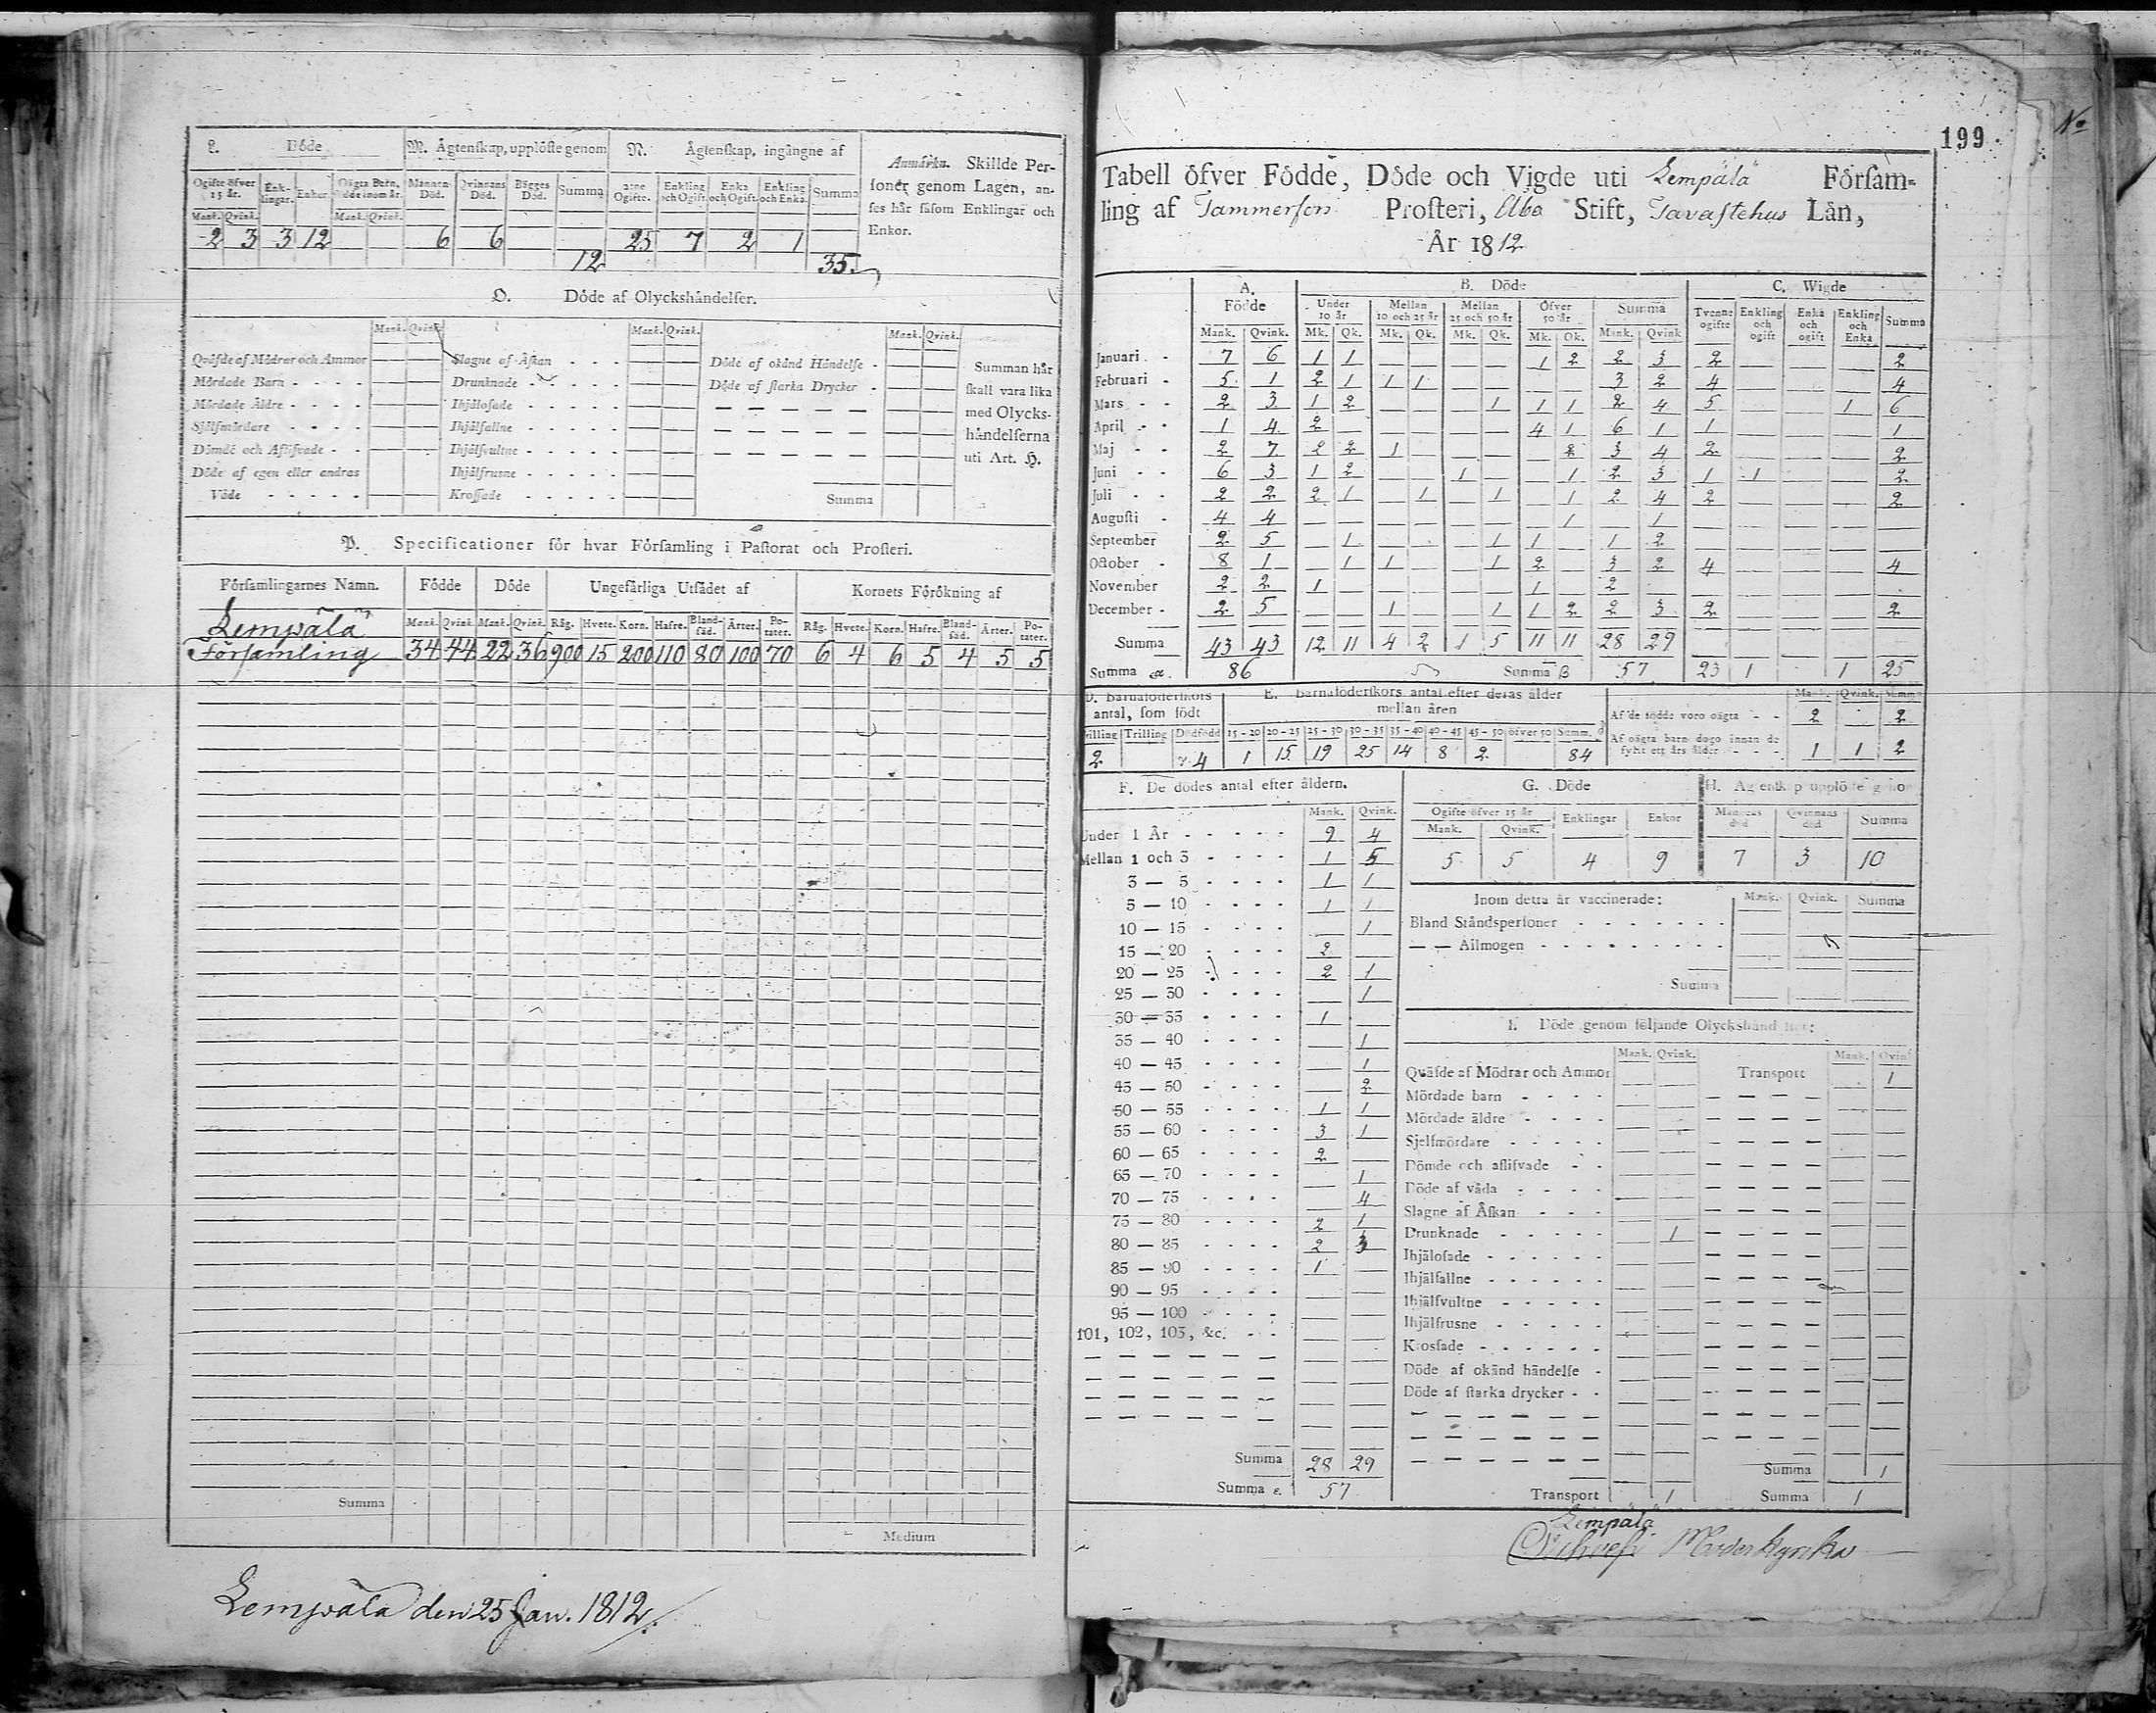 L. Döde
M. Ägtenskap, upplöste genom
N. Ägtenskap, ingångne af
Anmärkn. Skillde Per-
soner genom Lagen, an-
ses här såsom Enklingar och
Enkor.
Ogifte öfver 15 år. Enk-lingar. Enkor Oägta Barn, döde inom år. Mannens Död. Qvinnans Död. Bägges Död. Summa Ogifte. Enkling och Ogift. Enka och Ogift. Enkling och Enka. Summa
Mank. Qvink. Mank. Qvink.
2 3 3 12 6 6 25 7 2 1
12 35
O. Döde af Olyckshändelser.
Mank. Qvink. Mank. Qvink. Mank. Qvink.
Qväfde af Mödrar och Ammor Slagne af Åskan Döde af okänd Händelse Summan här
Mördade Barn Drunknade Döde af starka Drycker skall vara lika
Mördade Äldre Ihjälosade med Olycks-
Självmördare Ihjälfallne händelserna
Dömde och Aflifvade Ihjälfvultne uti Art. H.
Döde af egen eller andras Ihjälfrusne
Våde Krossade Summa
P. Specificationer för hvar Församling i Pastorat och Prosteri.
Församlingarnes Namn. Födde Döde Ungefärliga Utsädet af Kornets Förökning af
Mank. Qvink. Mank. Qvink. Råg. Hvete. Korn. Hafre. Bland-säd. Ärter. Po-tater. Råg. Hvete. Korn. Hafre. Bland-säd. Ärter. Po-tater.
Lempälä
Församling 34 44 22 36 900 15 200 110 80 100 70 6 4 6 5 4 5 5
Summa
Medium
Lempälä den 25 Jan. 1812
199
No
Tabell öfver Födde, Döde och Vigde uti Lempälä Församling
af Tammerfors Prosteri, Åbo Stift, Tavastehus Län,
År 1812
A. Födde B. Döde C. Wigde
Under 10 år Mellan 10 och 25 år Mellan 25 och 50 år Öfver 50 år Summa Tvenne ogifte Enkling och ogift Enka och ogift Enkling och Enka Summa
Mank. Qvink. Mk. Qk. Mk. Qk. Mk. Qk. Mk. Qk. Mank. Qvink
Januari 7 6 1 1 1 2 2 3 2 2
Februari 5 1 2 1 1 1 3 2 4 4
Mars 2 3 1 2 1 1 1 2 4 5 1 6
April 1 4 2 4 1 6 1 1 1
Maj 2 7 2 2 1 2 3 4 2 2
Juni 6 3 1 2 1 1 2 3 1 1 2
Juli 2 2 2 1 1 1 1 2 4 2 2
Augusti 4 4 1 1
September 2 5 1 1 1 1 2
October 8 1 1 1 1 2 3 2 4 4
November 2 2 1 1 2
December 2 5 1 1 1 2 2 3 2 2
Summa 43 43 12 11 4 2 1 5 11 11 28 29
Summa α. 86 Summa β 57 23 1 1 25
D. Barnaföderskors antal, som födt E. Barnaföderskors antal efter deras ålder mellan åren Mank. Qvink. Summa
Tvilling Trilling Dödfödd 15-20 20-25 25-30 30-35 35-40 40-45 45-50 öfver 50 Summ. Af de födde voro oägta 2 2
2 4 1 15 19 25 14 8 2 84 Af oägta barn dogo innan de fyllt ett års ålder 1 1 2
F. De dödes antal efter åldern.
Mank. Qvink.
Under 1 År 9 4
Mellan 1 och 3 1 5
3 — 5 1 1
5 — 10 1 1
10 — 15 1
15 — 20 2
20 — 25 2 1
25 — 30 1
30 — 35 1
35 — 40 1
40 — 45 1
45 — 50 2
50 — 55 1 1
55 — 60 3 1
60 — 65 2
65 — 70 1
70 — 75 4
75 — 80 2 1
80 — 85 2 3
85 — 90 1
90 — 95
95 — 100
101, 102, 103, &c.
Summa 28 29
Summa ε. 57
G. Döde H. Ägtenskap upplöste genom
Ogifte öfver 15 år Enklingar Enkor Mannens död Qvinnans död Summa
Mank. Qvink.
5 5 4 9 7 3 10
Inom detta år vaccinerade: Mank. Qvink. Summa
Bland Ståndspersoner
— — Allmogen
Summa
I. Döde genom följande Olyckshändelser:
Mank. Qvink. Mank. Qvink
Qväfde af Mödrar och Ammor Transport 1
Mördade barn
Mördade äldre
Sjelfmördare
Dömde och aflifvade
Döde af våda
Slagne af Åskan
Drunknade 1
Ihjälosade
Ihjälfallne
Ihjälfvultne
Ihjälfrusne
Krossade
Döde af okänd händelse
Döde af starka drycker
Summa 1
Transport 1 Summa 1
Lempälä
Moderkyrka